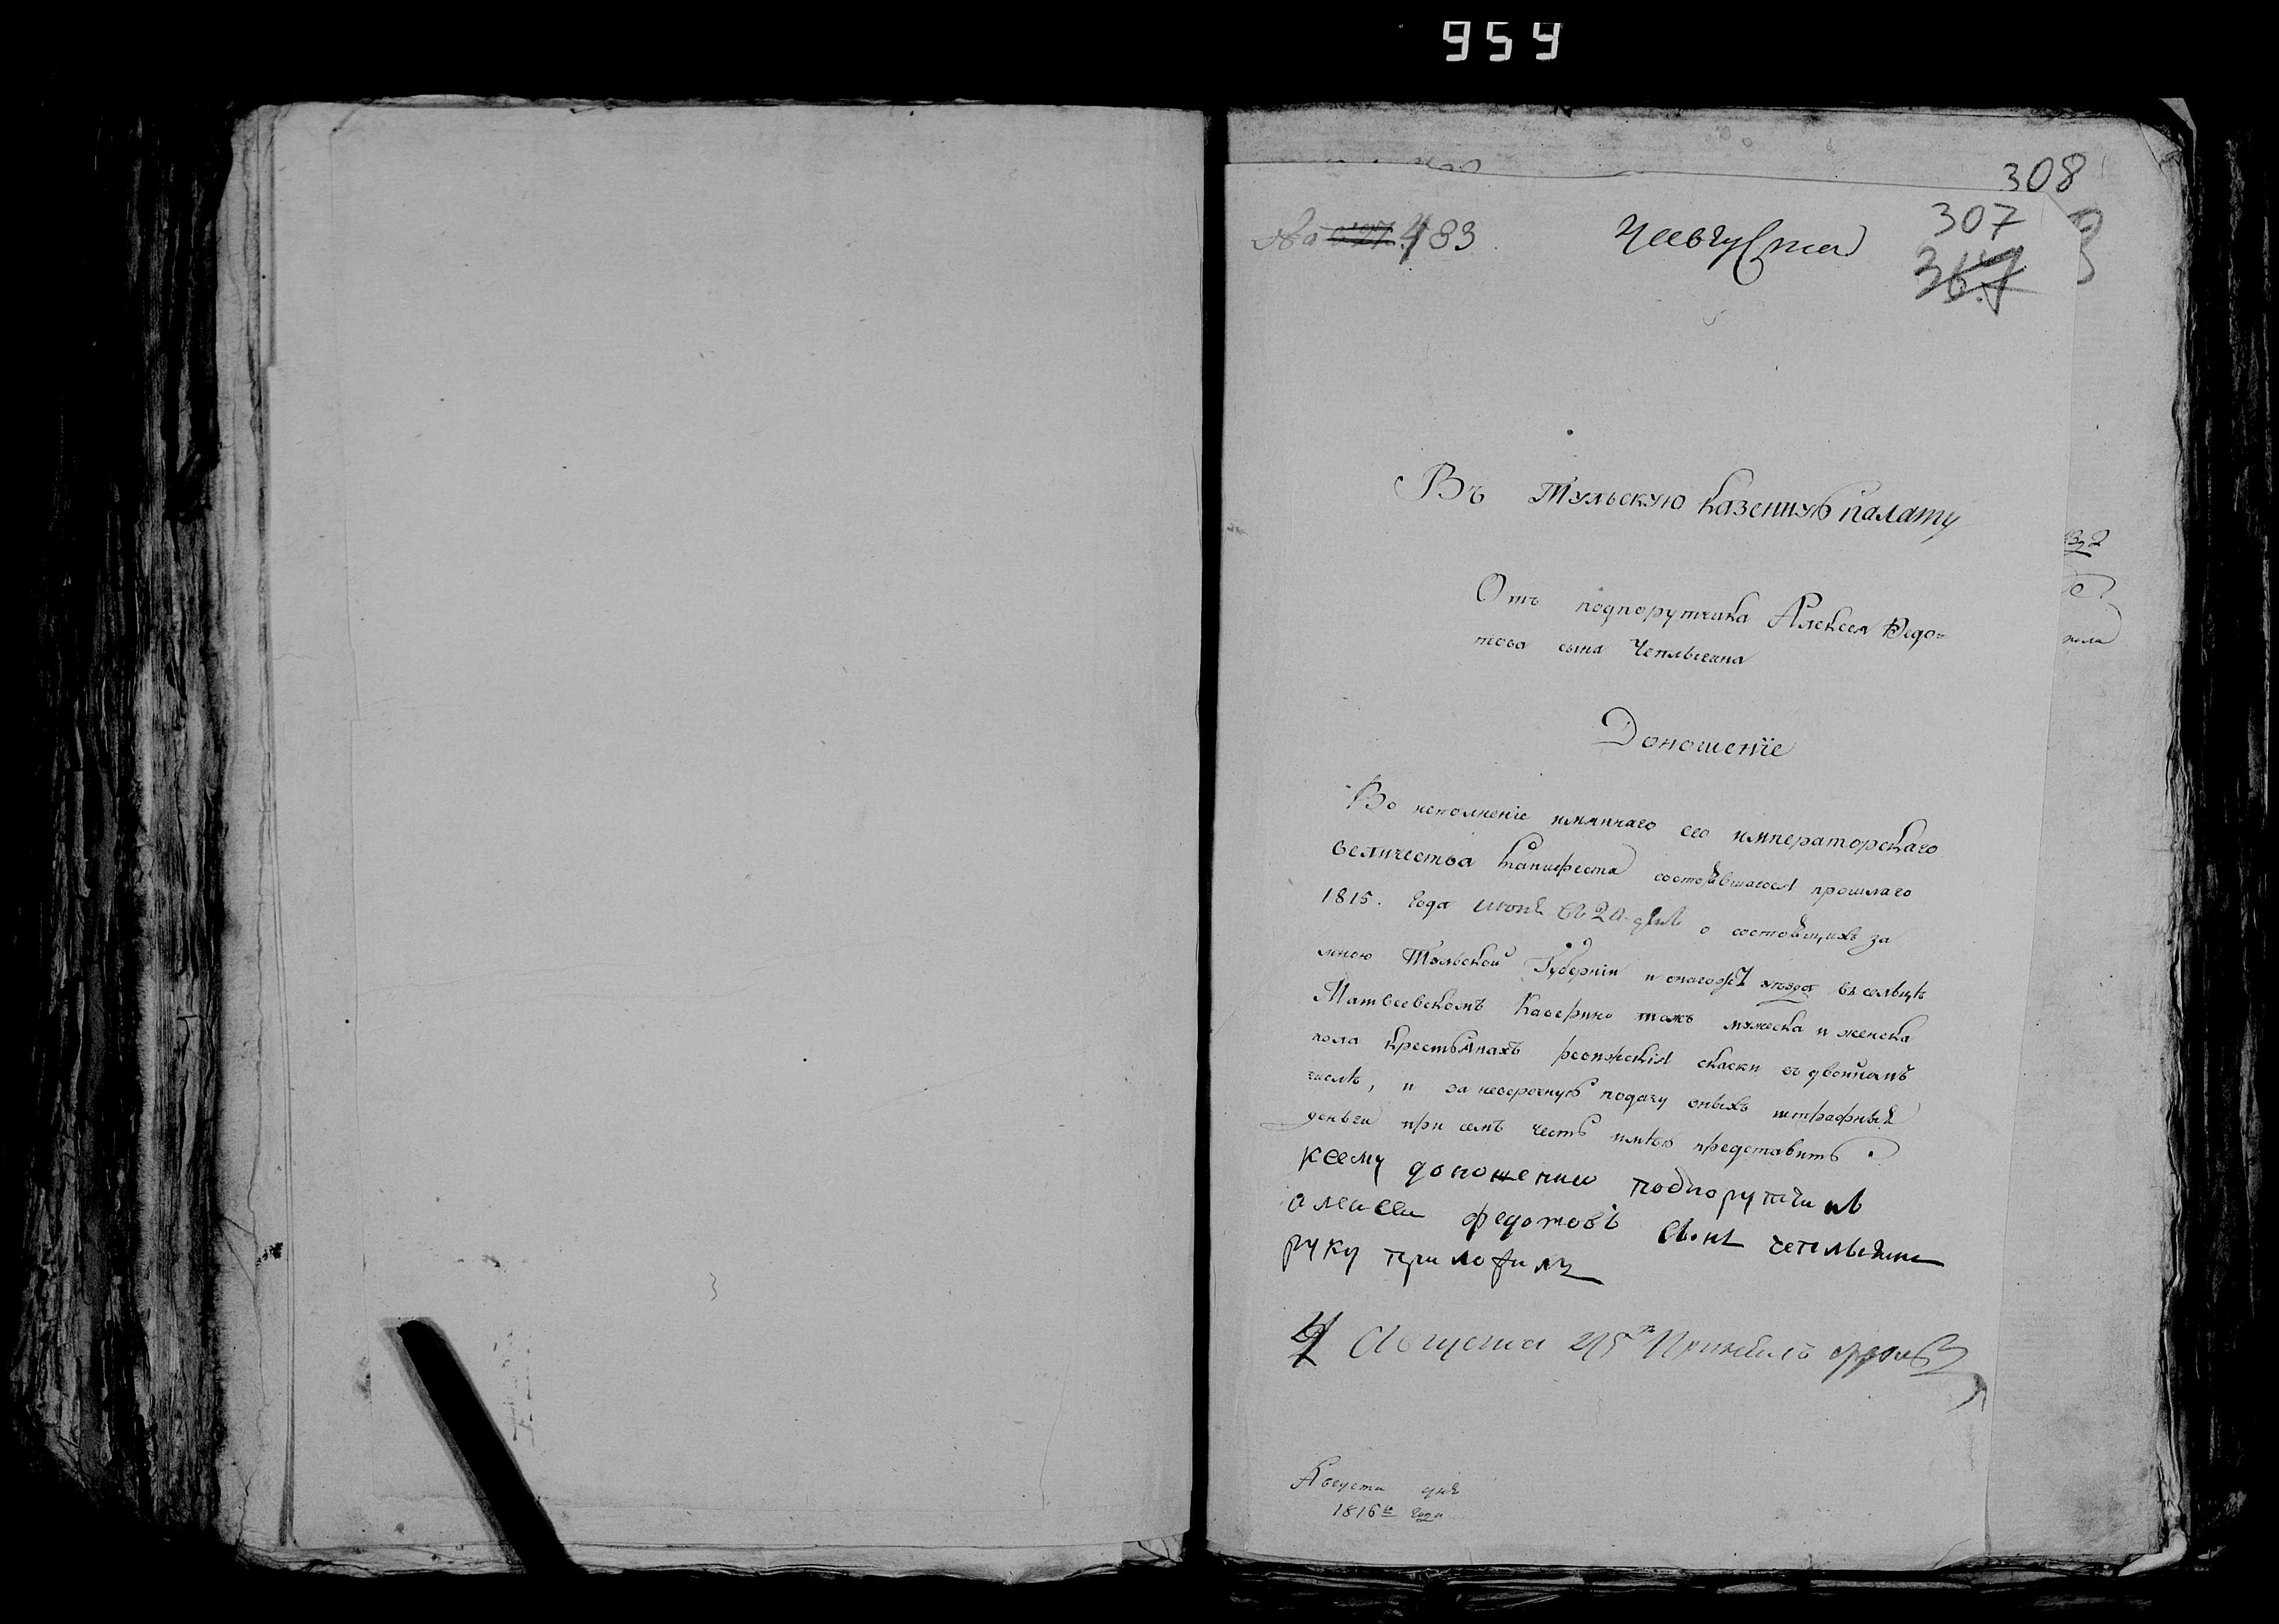 959
308
307
367
483
Въ Тульскую Казенную палату
Отъ подпорутчика Алексея Федо=
това сына Чепльгина
Доношенїе
Во исполненїе имяннаго его императорскаго
величества Манифеста состоявшагося прошлаго
1815. Года Июня въ 20 день о состоящихъ за
мною Тульской Губернїи и онагожъ уезда въ сельце
Матвеевскомъ Каверино тожъ мужеска и женска
пола крестьянахъ ревижскїя скаски въ двойномъ
числѣ, и за несрочную подачу оныхъ штрафныя
деньги при семъ честь имѣю представить.
ксему доношению подпорутчикъ
алексеи федотовъ сынъ
руку приложилъ
Августа
Августа дня
1816го года